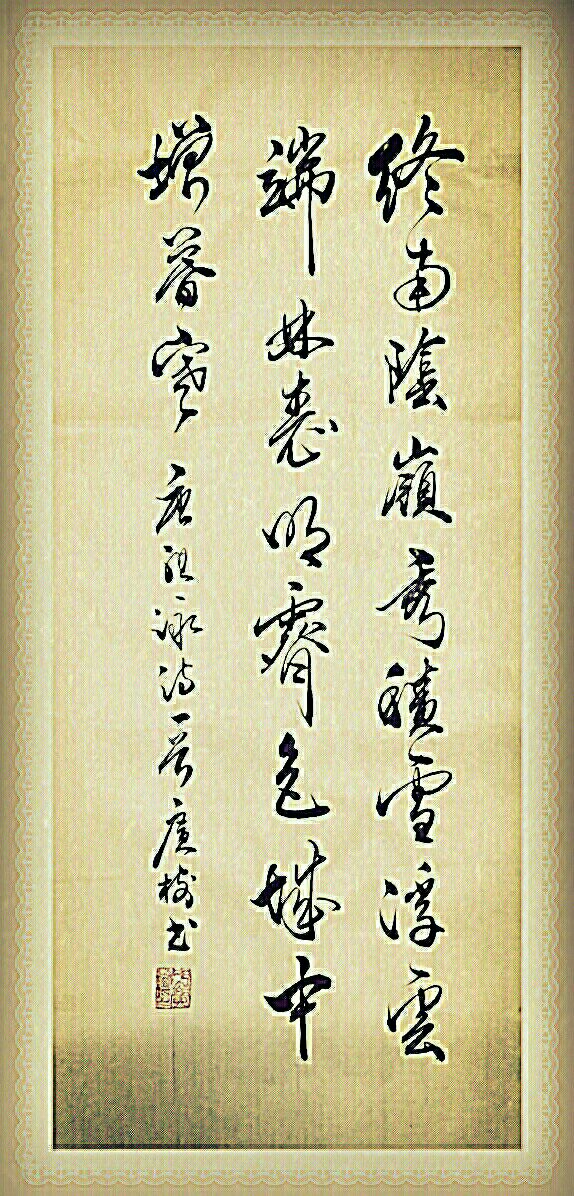 終南陰嶺秀積雪浮雲
端林表明霽色城中
增暮寒 唐祖詠詩一首 廣樹书